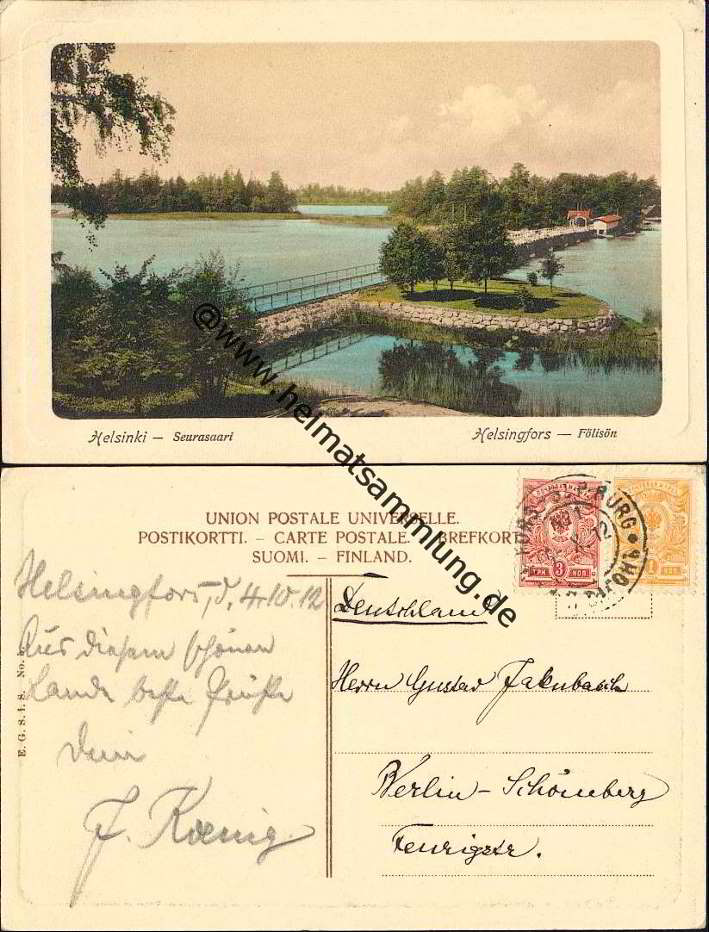 Helsinki – Seurasaari
Helsingfors – Fölisön
@www.heimatsammlung.de
UNION POSTALE UNIVERSELLE.
POSTIKORTTI. – CARTE POSTALE. – BREFKORT
SUOMI. – FINLAND.
Helsingfors, d. 4.10.12
Aus diesem schönen
Lande beste Grüße
Dein
F. Koenig
E. G. S. i. S. No.
Deutschland
Herrn Gustav
Berlin – Schöneberg
Feurigstr.
3
1